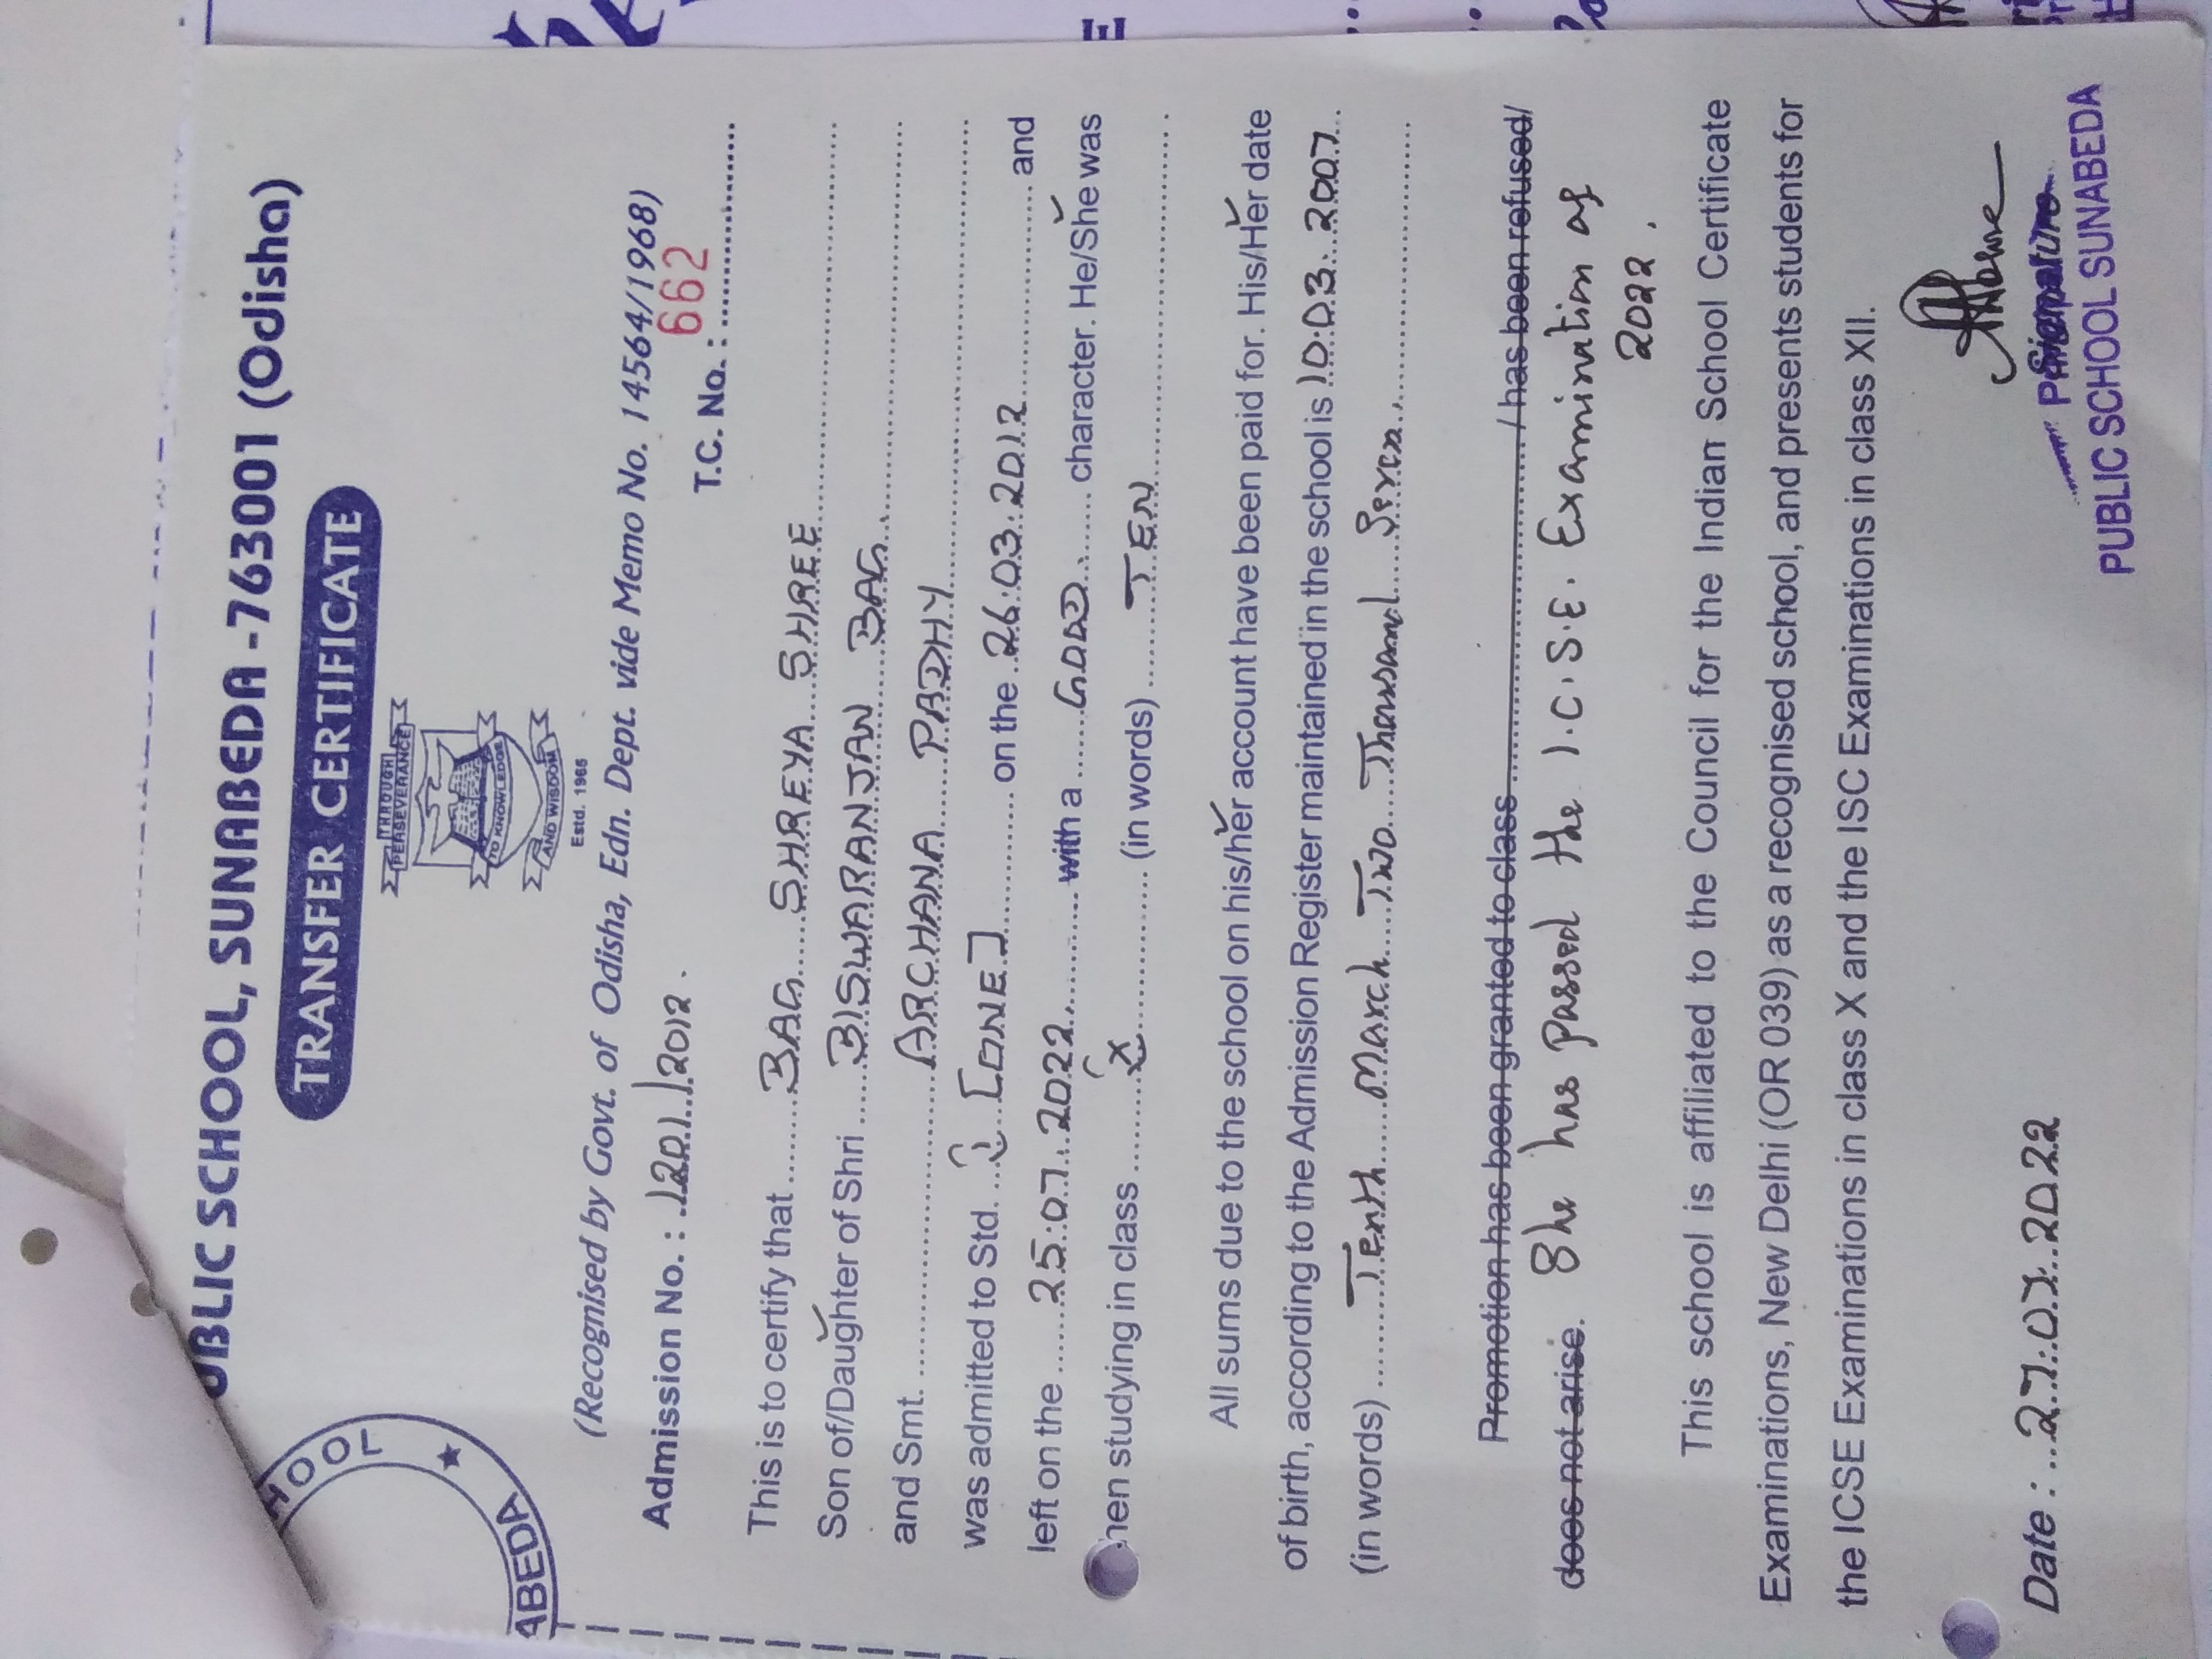 PUBLIC SCHOOL, SUNABEDA - 763001 (Odisha)
TRANSFER CERTIFICATE
THROUGH
PERSEVERANCE
TO KNOWLEDGE
AND WISDOM
Estd. 1965
HOOL
ABEDA
(Recognised by Govt. of Odisha, Edn. Dept. vide Memo No. 14564/1968)
Admission No. : 1201/2012.
T.C. No. : 662
This is to certify that BAG SHREYA SHREE
Son of/Daughter of Shri BISWARANJAN BAG
and Smt. ARCHANA PADHY
was admitted to Std. I [ONE] on the 26.03.2012 and
left on the 25.07.2022 with a GOOD character. He/She was
hen studying in class X (in words) TEN
All sums due to the school on his/her account have been paid for. His/Her date
of birth, according to the Admission Register maintained in the school is 10.03.2007
(in words) Tenth March Two Thousand Seven
Promotion has been granted to class / has been refused/
does not arise. She has passed the I.C.S.E. Examination of
2022.
This school is affiliated to the Council for the Indian School Certificate
Examinations, New Delhi (OR 039) as a recognised school, and presents students for
the ICSE Examinations in class X and the ISC Examinations in class XII.
Date : 27.07.2022
PUBLIC SCHOOL SUNABEDA